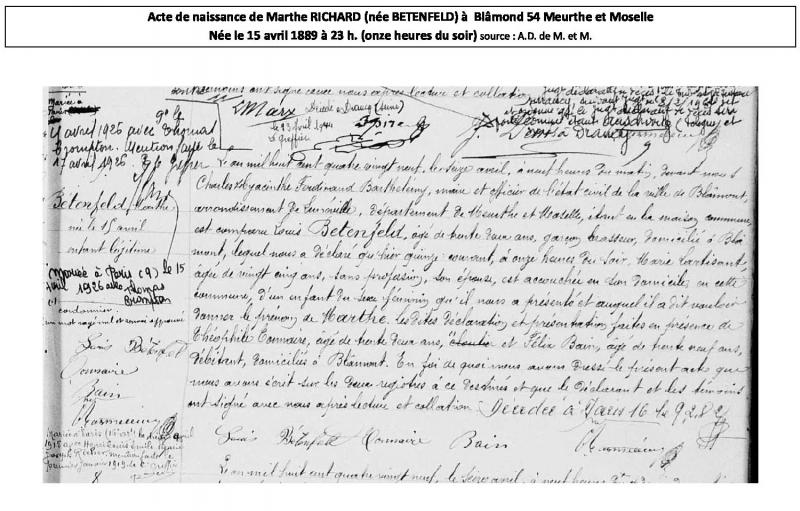 Acte de naissance de Marthe RICHARD (née BETENFELD) à Blâmond 54 Meurthe et Moselle
Née le 15 avril 1889 à 23 h. (onze heures du soir) source : A.D. de M. et M.
témoins ont signé avec nous après lecture et collation
Marx
Décédé à Drancy (Seine)
le 23 avril 1944
Le Greffier
Mariée à
9e le
17 avril 1926 avec Thomas
Crompton. Mention faite le
17 avril 1926.
Betenfeld
Marthe
née le 15 avril
enfant légitime
Mariée à Paris (9e) le 15
avril 1926 avec Thomas
Crompton
cordonnier
un mot rayé nul et renvoi approuvé
Louis Betenfeld
Connaire
Bain
L'an mil huit cent quatre vingt neuf, le seize avril, à neuf heures du matin, devant nous
Charles Hyacinthe Ferdinand Barthelemy, maire et officier de l'état civil de la ville de Blâmont,
arrondissement de Lunéville, département de Meurthe et Moselle, étant en la maison commune,
est comparu Louis Betenfeld, agé de trente deux ans, garçon brasseur, domicilié à Blâ
mont, lequel nous a déclaré qu'hier quinze courant, à onze heures du soir, Marie Lartisant,
agée de vingt cinq ans, sans profession, son épouse, est accouchée en son domicile, en cette
commune, d'un enfant du sexe féminin qu'il nous a présenté et auquel il a dit vouloir
donner le prénom de Marthe. Les dites déclaration et présentation faites en présence de
Théophile Connaire, agé de trente deux ans, et Félix Bain, agé de trente neuf ans,
débitant, domiciliés à Blâmont. En foi de quoi nous avons dressé le présent acte que
nous avons écrit sur les deux registres à ce destinés et que le déclarant et les témoins
ont signé avec nous après lecture et collation. Décédée à Paris 16 le 9.2.82
Louis Betenfeld Connaire Bain
Mariée à Paris
1915 avec Henri
Richer mention faite le
janvier 1919 le Greffier
L'an mil huit cent quatre vingt neuf, le seize avril, à neuf heures